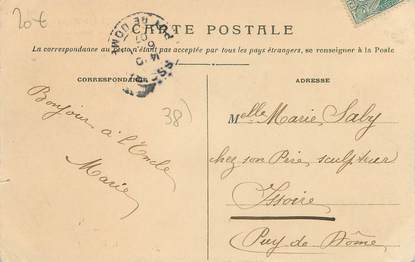 20 €
CARTE POSTALE
La correspondance au recto n'étant pas acceptée par tous les pays étrangers, se renseigner à la Poste
CORRESPONDANCE
Bonjour
à l'Oncle
Marie
38)
ADRESSE
Melle Marie Saby
chez son Père sculpteur
Issoire
Puy de Dôme